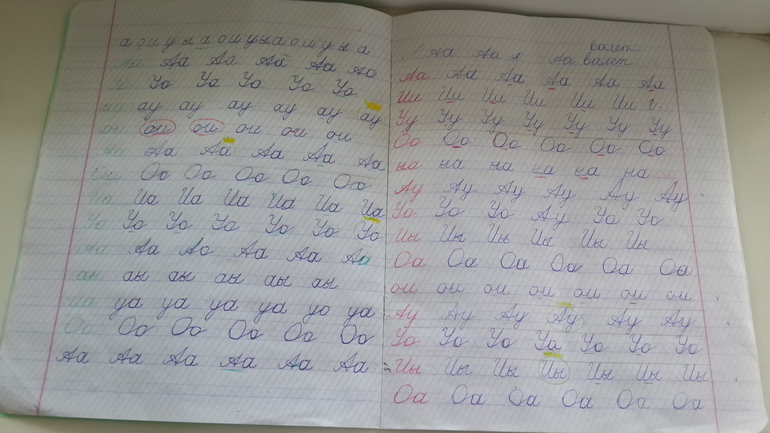 а о и у ы а о и у ы а о и у ы а
Аа Аа Аа Аа Аа Ао
Уо Уо Уа Уо Уо Уо
ау ау ау ау ау ау ау
ои ои ои ои ои ои
Аа Аа Аа Аа Аа Аа
Оо Оо Оо Оо Оо Оо
Иа Иа Иа Иа Иа Иа Иа
Уо Уо Уо Уо Уо Уо Уо
Аа Аа Ао Аа Аа Аа
аы аы аы аы аы аы
уа уа уа уа уа уо уа
Оо Оо Оо Оо Оо Оо
Аа Аа Аа Аа Аа Аа
валет
Аа Аа л Аа валет
Аа Аа Аа Аа Аа Аа
Ии Ии Ии Ии Ии Ии
Уу Уу Уу Уу Уу Уу Уу
Оо Оо Оо Оо Оо Оо
на на на на на на
Ау Ау Ау Ау Ау Ау
Уо Уо Уо Ау Уо Уо
Иы Иы Иы Иы Иы Иы
Оа Оа Оа Оа Оа Оа
ои ои ои ои ои ои ои
Ау Ау Ау Ау Ау Ау
Уо Уо Уо Уа Уо Уо Уо
Иы Иы Иы Иы Иы Иы Иы
Оа Оа Оа Оа Оа Оа